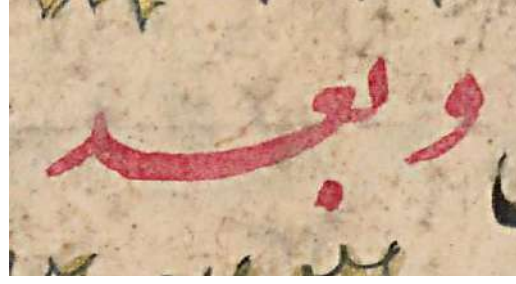 وبعد